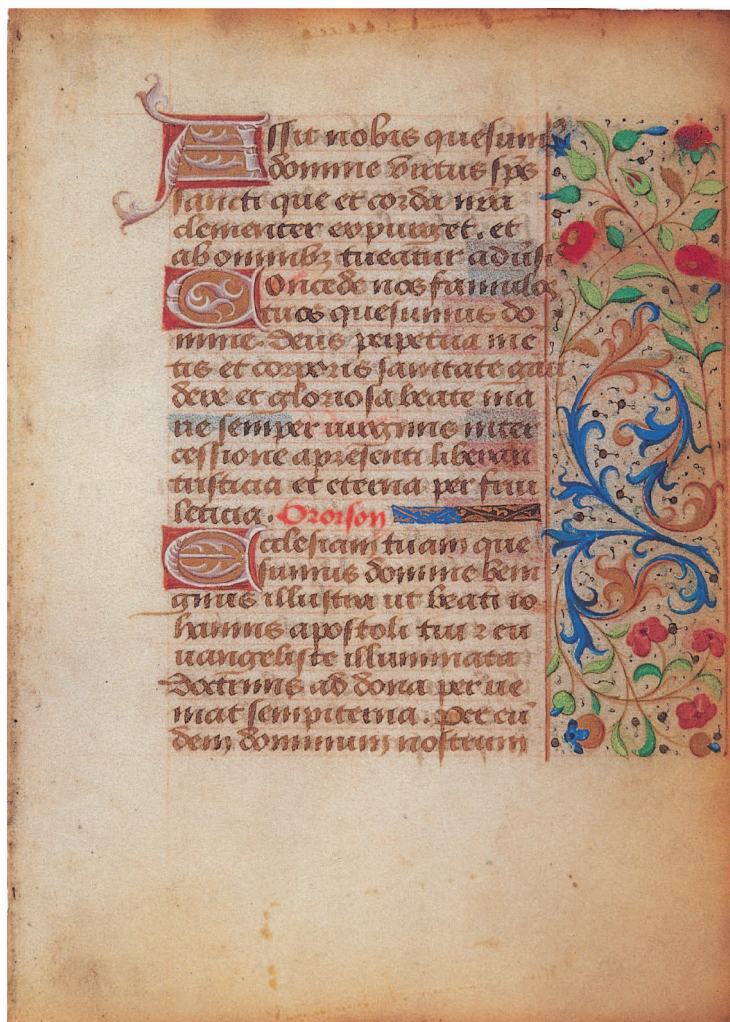 Assit nobis quesum
domine virtus sps
sancti que et corda nra
clementer expurget. et
ab omnibz tueatur aduersi
Concede nos famulos
tuos quesumus do
mine. deus perpetua me
tis et corporis sanitate gau
dere et gloriosa beate ma
rie semper uirginis inter
cessione apresenti liberari
tristicia et eterna per frui
leticia. Oroison
Ecclesiam tuam que
sumus domine beni
gnus illustra ut beati io
hannis apostoli tui z eu
uangeliste illuminata
doctrinis ad dona per ue
niat sempiterna. Per eu
dem dominum nostrum